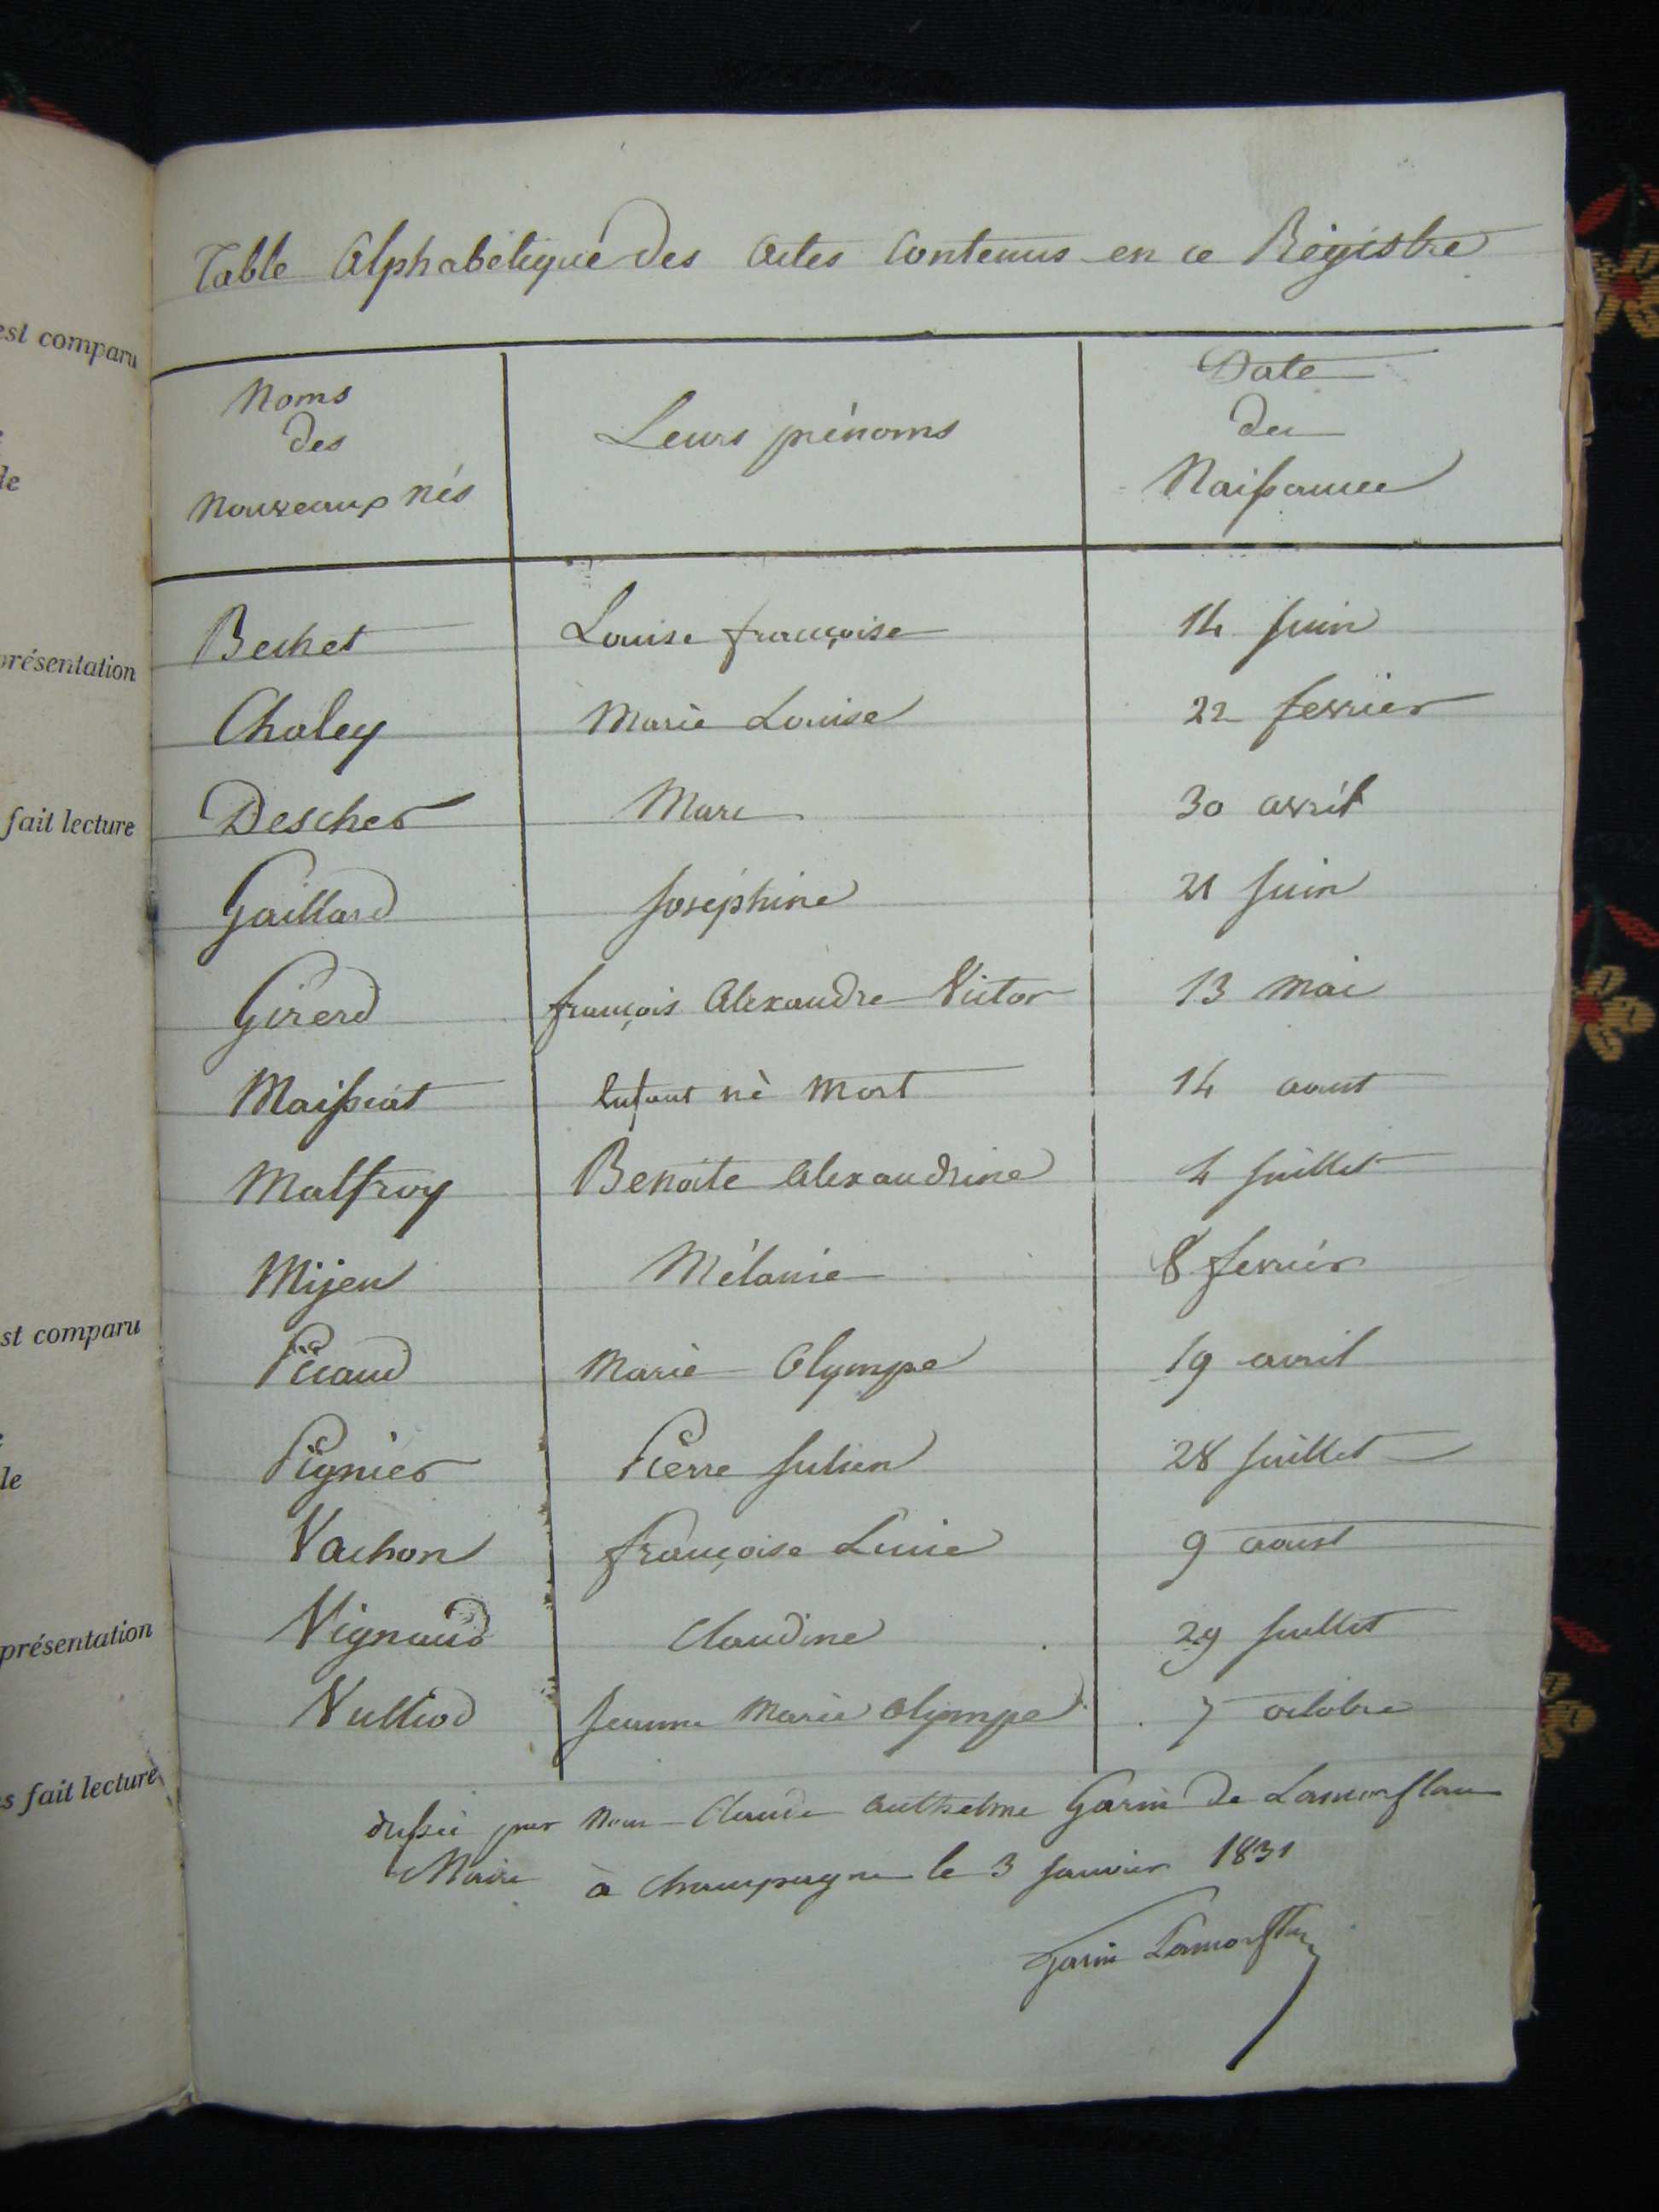 Table Alphabétique des Actes Contenus en ce Régistre
Noms
des
Nouveaux nés
Leurs prénoms
Date
de
Naissance
Bechet Louise françoise 14 Juin
Chaley Marie Louise 22 fevrier
Descher Marc 30 avril
Gaillard Joséphine 21 Juin
Girerd françois Alexandre Victor 13 Mai
Maissiat Enfant né Mort 14 aout
Malfroy Benoite Alexandrine 4 Juillet
Mijen Mélanie 8 fevrier
Picaud Marie Olympe 19 avril
Pignier Pierre Julien 28 Juillet
Vachon françoise 9 aoust
Vignaud Claudine 29 Juillet
Vulliod Jeanne Marie Olympe 7 octobre
dressé par Nous Claude Anthelme Garin de
Maire à Champagne le 3 Janvier 1831
Garin
est comparu
de
présentation
fait lecture
est comparu
le
présentation
s fait lecture